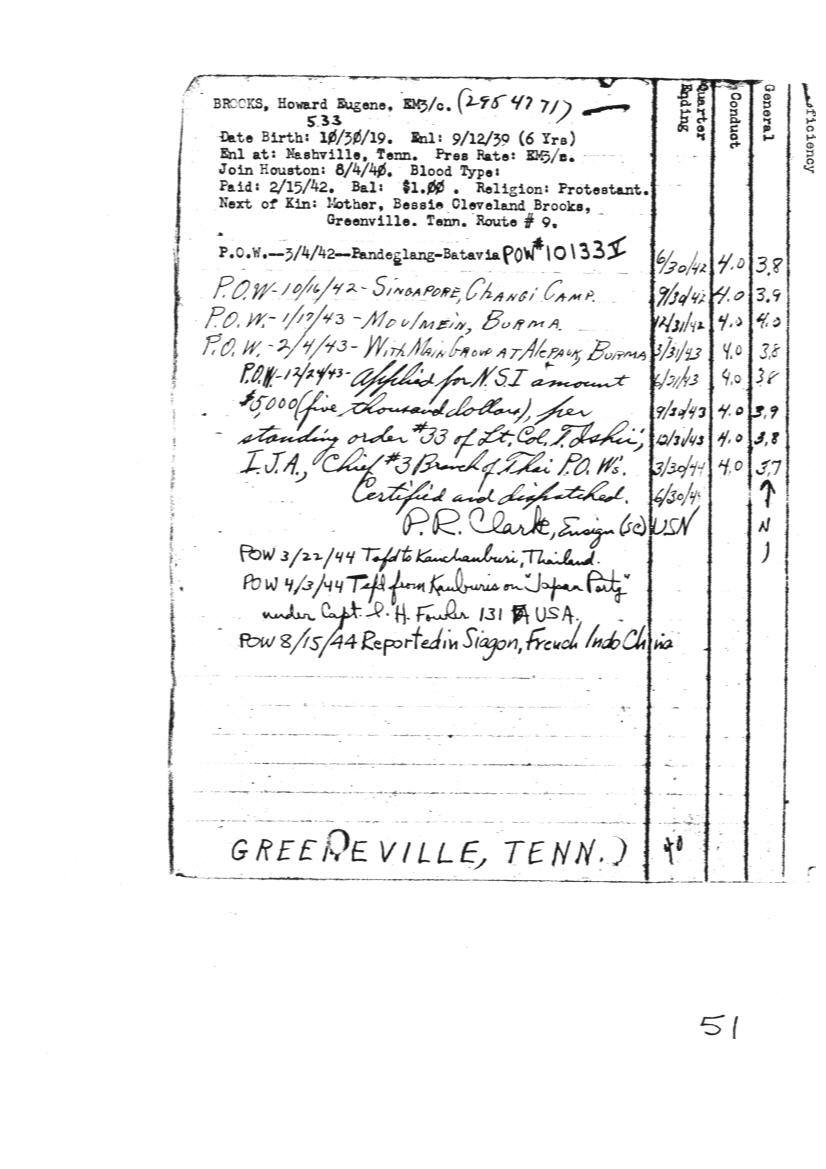 Quarter Ending Conduct General
BROOKS, Howard Eugene, EM3/c. (295 47 71)
533
Date Birth: 10/30/19. Enl: 9/12/39 (6 Yrs)
Enl at: Nashville, Tenn. Pres Rate: EM3/c.
Join Houston: 8/4/40. Blood Type:
Paid: 2/15/42. Bal: $1.00. Religion: Protestant.
Next of Kin: Mother, Bessie Cleveland Brooks,
Greenville. Tenn. Route # 9.
P.O.W.--3/4/42--Pandeglang-Batavia POW #10133 V 6/30/42 4.0 3.8
P.O.W-10/16/42-SINGAPORE, CHANGI CAMP. 9/30/42 4.0 3.9
P.O.W.-1/17/43-MOULMEIN, BURMA. 12/31/42 4.0 4.0
P.O.W.-2/4/43-WITH MAIN GROUP AT ALEPAUK, BURMA 3/31/43 4.0 3.8
P.O.W.-12/24/43-applied for N.S.I amount 6/31/43 4.0 38
$5,000 (five thousand dollars), per 9/30/43 4.0 3.9
standing order #33 of Lt. Col. T. Ishii, 12/31/43 4.0 3.8
I.J.A., Chief #3 Branch of Thai P.O.W's. 3/30/44 4.0 3.7
Certified and dispatched. 6/30/44
P.R. Clark, Ensign (SC) USN N
POW 3/22/44 Tsfd to Kanchanburi, Thailand. )
POW 4/3/44 Tsfd from Kanburi on "Japan Party"
under Capt. H. Fowler 131 FA USA.
POW 8/15/44 Reported in Siagon, French Indo China
GREENEVILLE, TENN.) 40
51